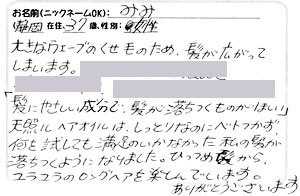 お名前(ニックネームOK): みみ
静岡 在住、37歳、性別: 女性
大きなウェーブのくせもののため、髪が広がって
しまいます。
「髪にやさしい成分で、髪が落ちつくものがほしい」
天然ル ヘアオイルは、しっとりなのにベトつかず、
何を試しても満足のいかなかった私の髪が
落ちつくようになりました。ひっつめ髪から、
ユラユラのロングヘアを楽しんでいます。
ありがとうございます